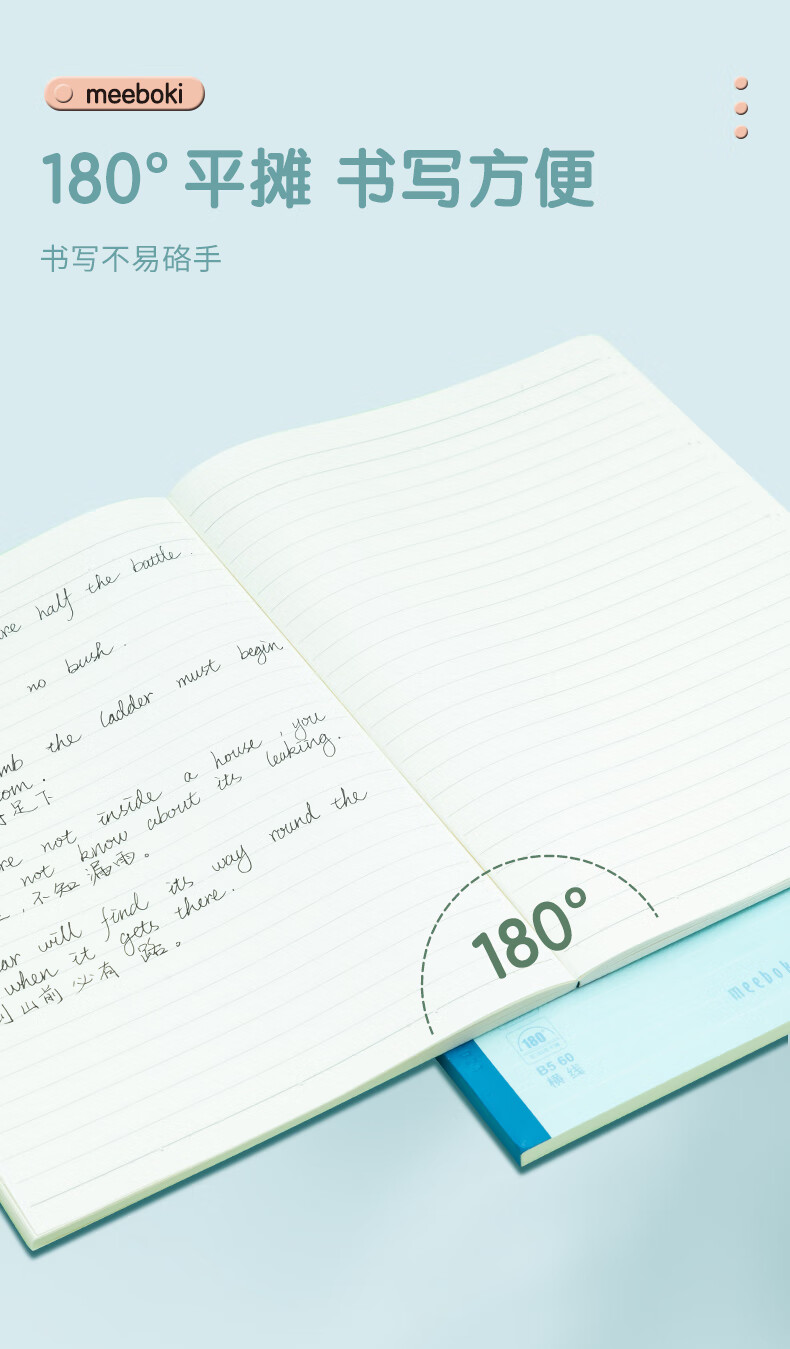 meeboki
180° 平摊 书写方便
书写不易硌手
re half the battle.
no bush.
mb the ladder must begin
om.
足下
re not inside a house, you
not know about its leaking.
,不知漏雨。
ar will find its way round the
when it gets there.
山前必有路。
180°
meebok
180°
B5 60
横线